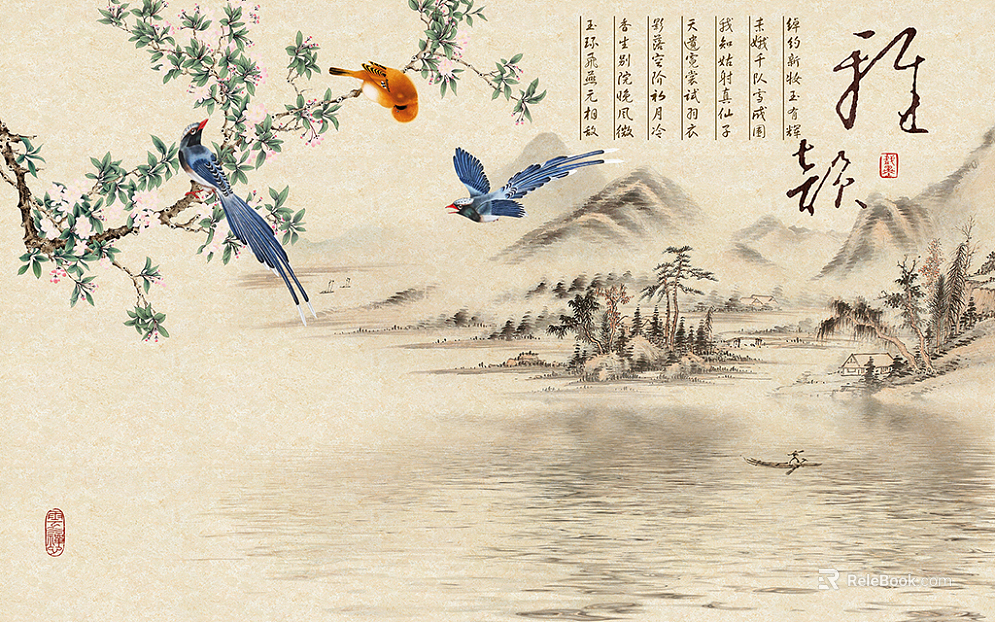 雅韻
綽約新妝玉有輝
素娥千队雪成圍
我知姑射真仙子
天遣霓裳试羽衣
影落空阶初月冷
香生别院晚风微
玉环飛燕元相敌
ReleBook.com